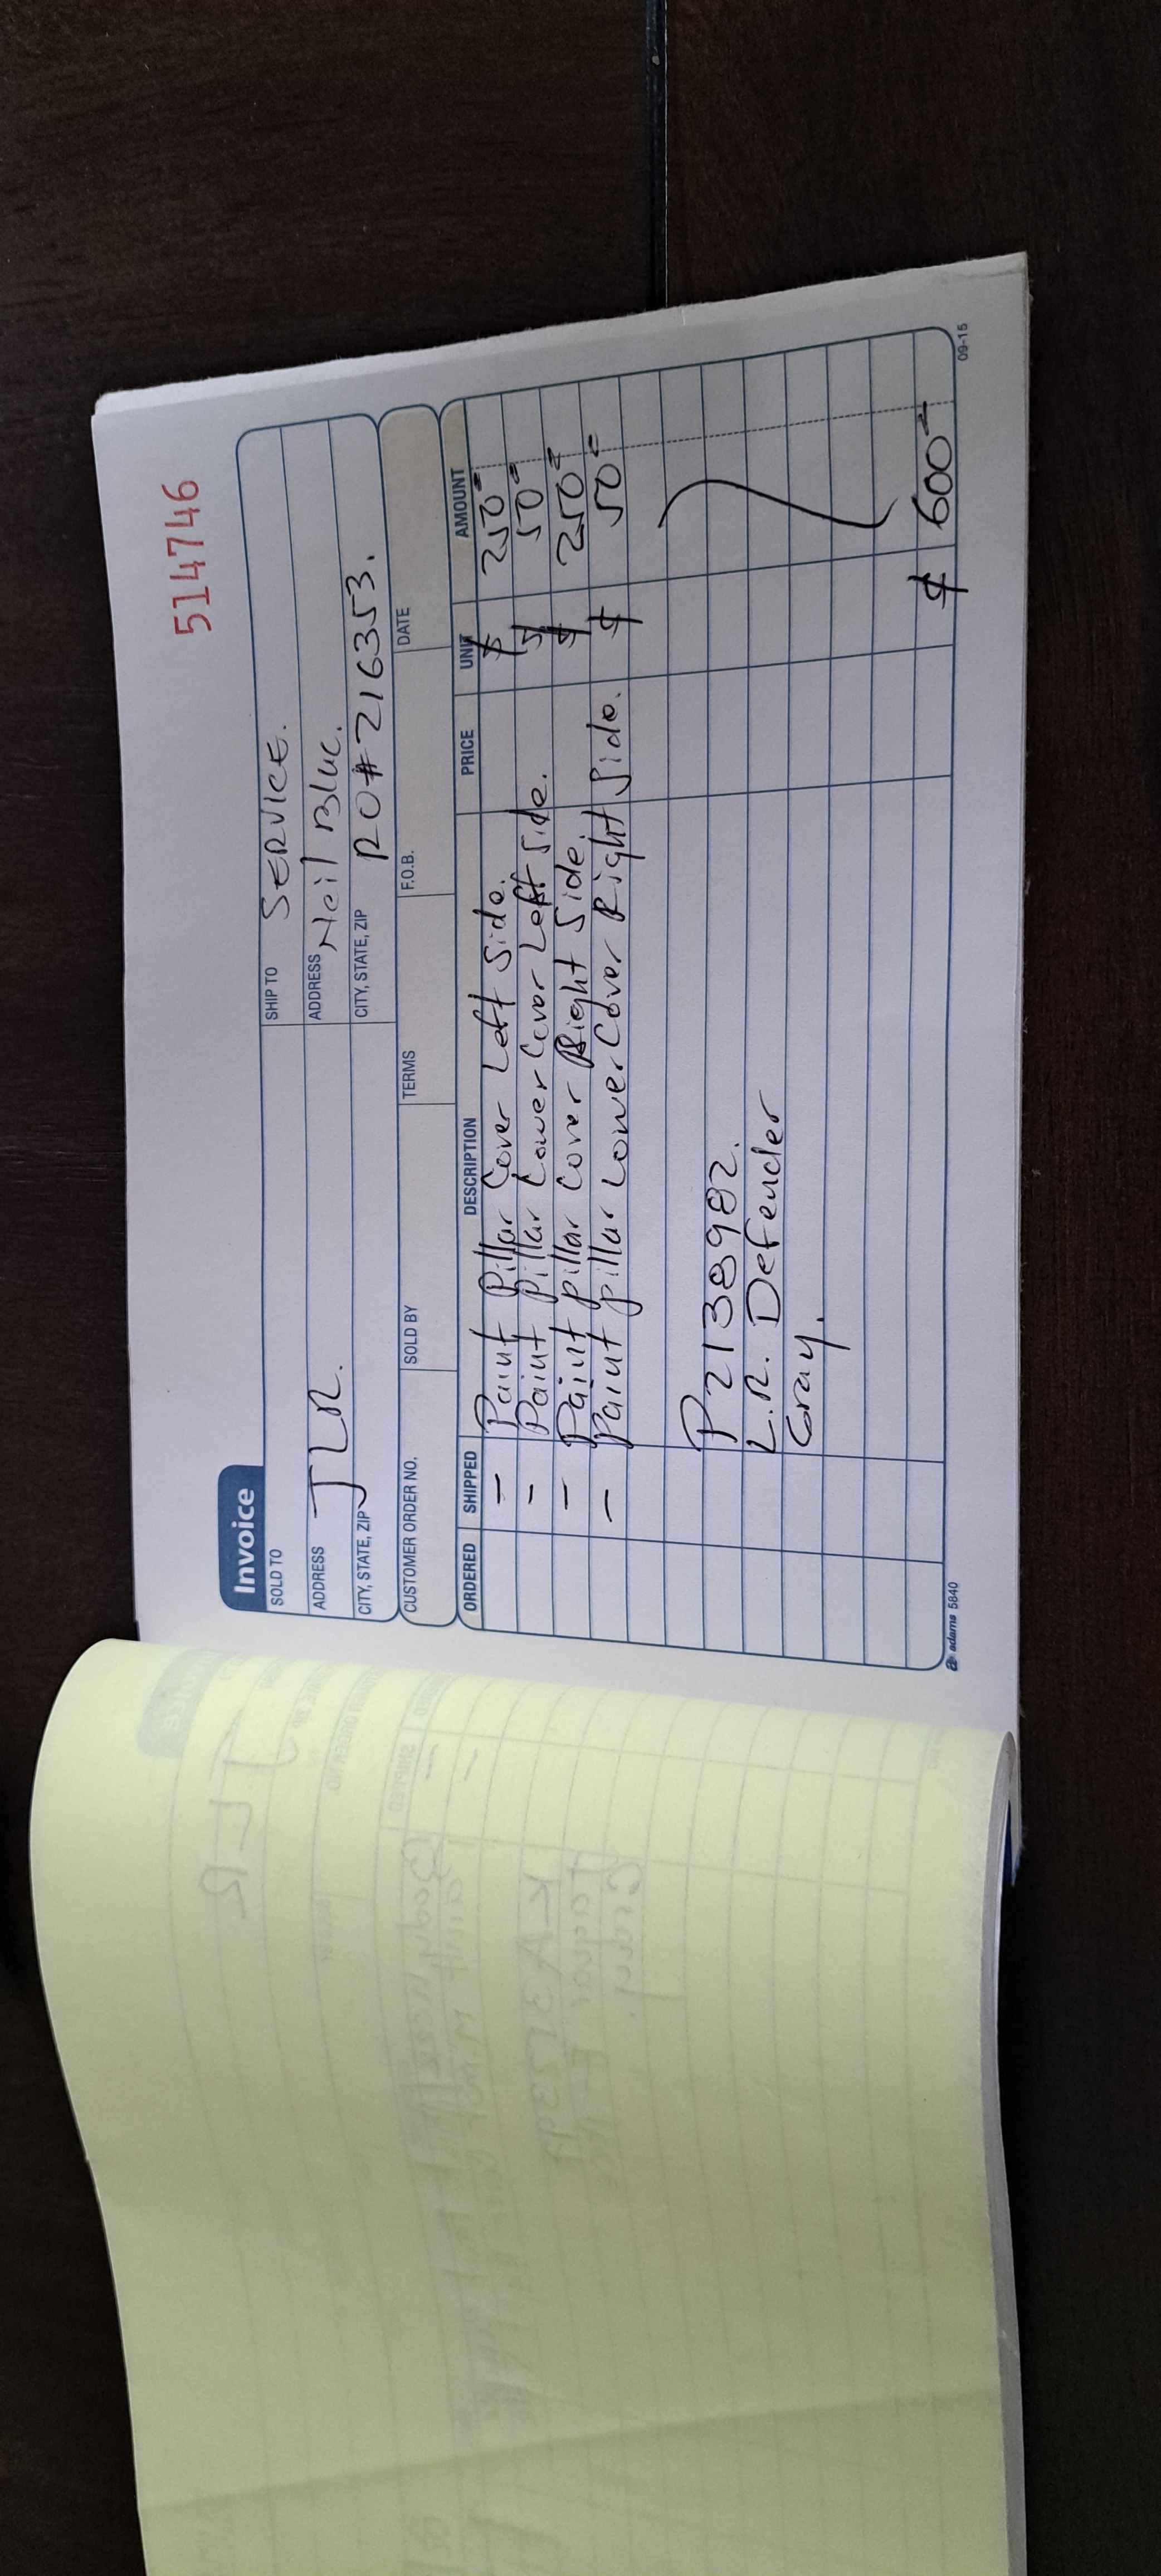 514746
Invoice
SOLD TO
SHIP TO SERVICE.
ADDRESS JLR.
ADDRESS Neil Blue.
CITY, STATE, ZIP
CITY, STATE, ZIP RO# 216353.
CUSTOMER ORDER NO. SOLD BY TERMS F.O.B. DATE
ORDERED SHIPPED DESCRIPTION PRICE UNIT AMOUNT
- Paint Pillar Cover Left Side. $ 250=
- Paint Pillar Lower Cover Left Side. $ 50=
- Paint pillar Cover Right Side. $ 250=
- Paint pillar Lower Cover Right Side. $ 50=
P2138982.
L.R. Defender
Gray.
$ 600=
adams 5840
09-15